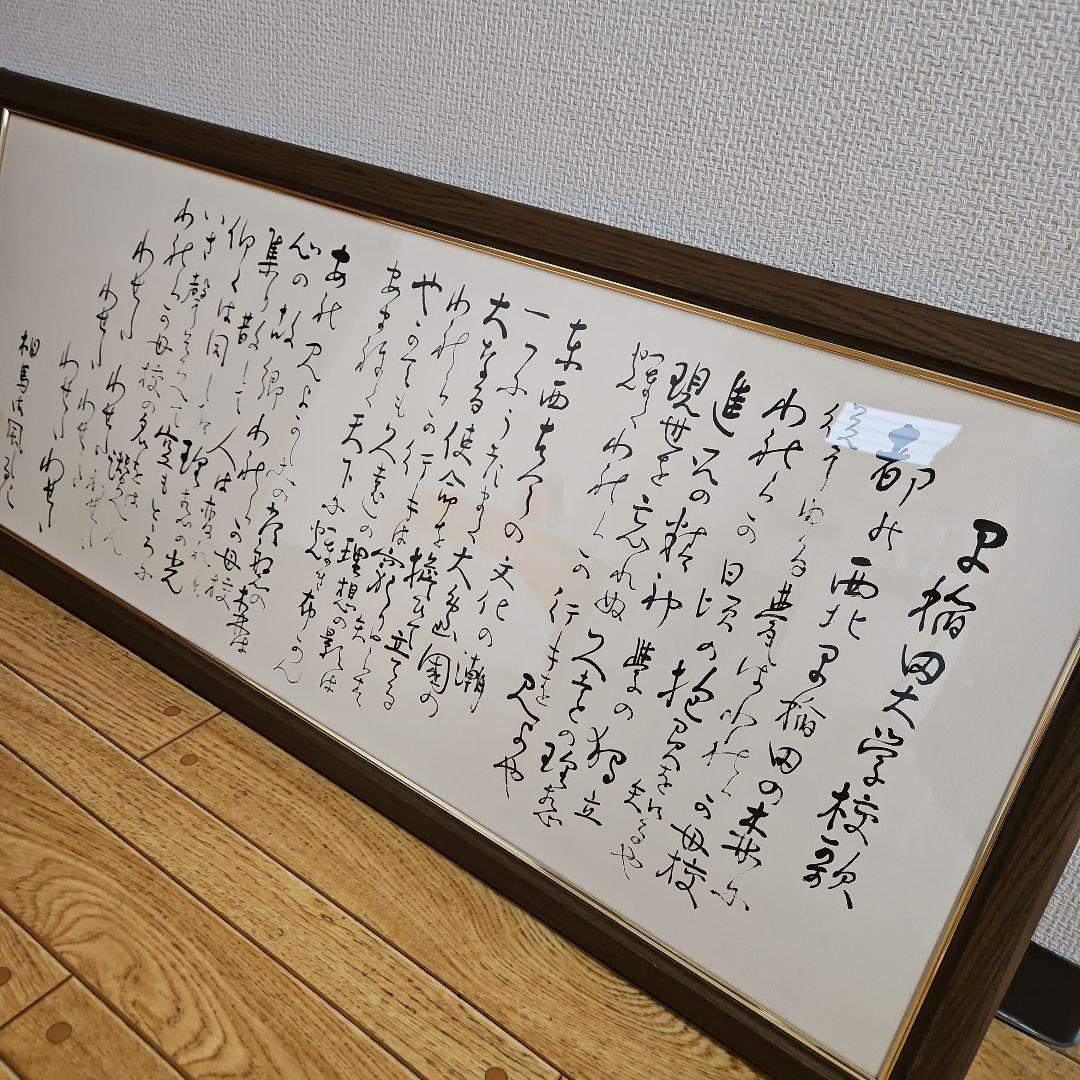 早稲田大学校歌
都の西北 早稲田の森に
聳ゆる甍は われらが母校
われらが日頃の 抱負を知るや
進取の精神 学の独立
現世を忘れぬ 久遠の理想
輝くわれらが 行手を見よや
東西古今の 文化の潮
一つに渦まく 大島国の
大なる使命を 担ひて立てる
われらが行手は 窮り知らず
やがても久遠の 理想の影は
あまねく天下に 輝き布かん
あれ見よかしこの 常磐の森は
心の故郷 われらが母校
集り散じて 人は変れど
仰ぐは同じき 理想の光
いざ声そろへて 空もとどろに
われらが母校の 名をばたたへん
わせだ わせだ
わせだ わせだ
わせだ わせだ わせだ
相馬御風